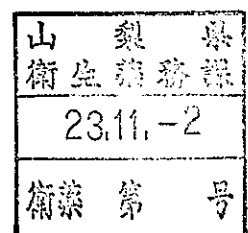 山梨県
衛生薬務課
23.11.-2
衛薬第 号